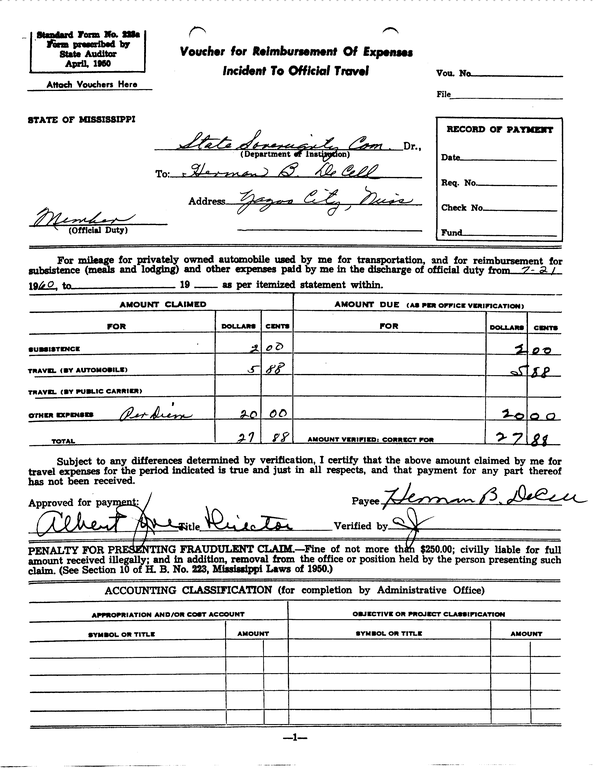 Standard Form No. 223a
Form prescribed by
State Auditor
April, 1950
Attach Vouchers Here
Voucher for Reimbursement Of Expenses
Incident To Official Travel
Vou. No.
File
STATE OF MISSISSIPPI
RECORD OF PAYMENT
Date
Req. No.
Check No.
Fund
State Sovereignty Com. Dr.,
(Department of Institution)
To: Herman B. DeCell
Address Yazoo City, Miss
Member
(Official Duty)
For mileage for privately owned automobile used by me for transportation, and for reimbursement for
subsistence (meals and lodging) and other expenses paid by me in the discharge of official duty from 7-21
1960, to 19 as per itemized statement within.
AMOUNT CLAIMED AMOUNT DUE (AS PER OFFICE VERIFICATION)
FOR DOLLARS CENTS FOR DOLLARS CENTS
SUBSISTENCE 2 00 2 00
TRAVEL (BY AUTOMOBILE) 5 88 5 88
TRAVEL (BY PUBLIC CARRIER)
OTHER EXPENSES Per Diem 20 00 20 00
TOTAL 27 88 AMOUNT VERIFIED: CORRECT FOR 27 88
Subject to any differences determined by verification, I certify that the above amount claimed by me for
travel expenses for the period indicated is true and just in all respects, and that payment for any part thereof
has not been received.
Approved for payment: Payee Herman B. DeCell
Albert Title Director Verified by
PENALTY FOR PRESENTING FRAUDULENT CLAIM.—Fine of not more than $250.00; civilly liable for full
amount received illegally; and in addition, removal from the office or position held by the person presenting such
claim. (See Section 10 of H. B. No. 223, Mississippi Laws of 1950.)
ACCOUNTING CLASSIFICATION (for completion by Administrative Office)
APPROPRIATION AND/OR COST ACCOUNT OBJECTIVE OR PROJECT CLASSIFICATION
SYMBOL OR TITLE AMOUNT SYMBOL OR TITLE AMOUNT
—1—